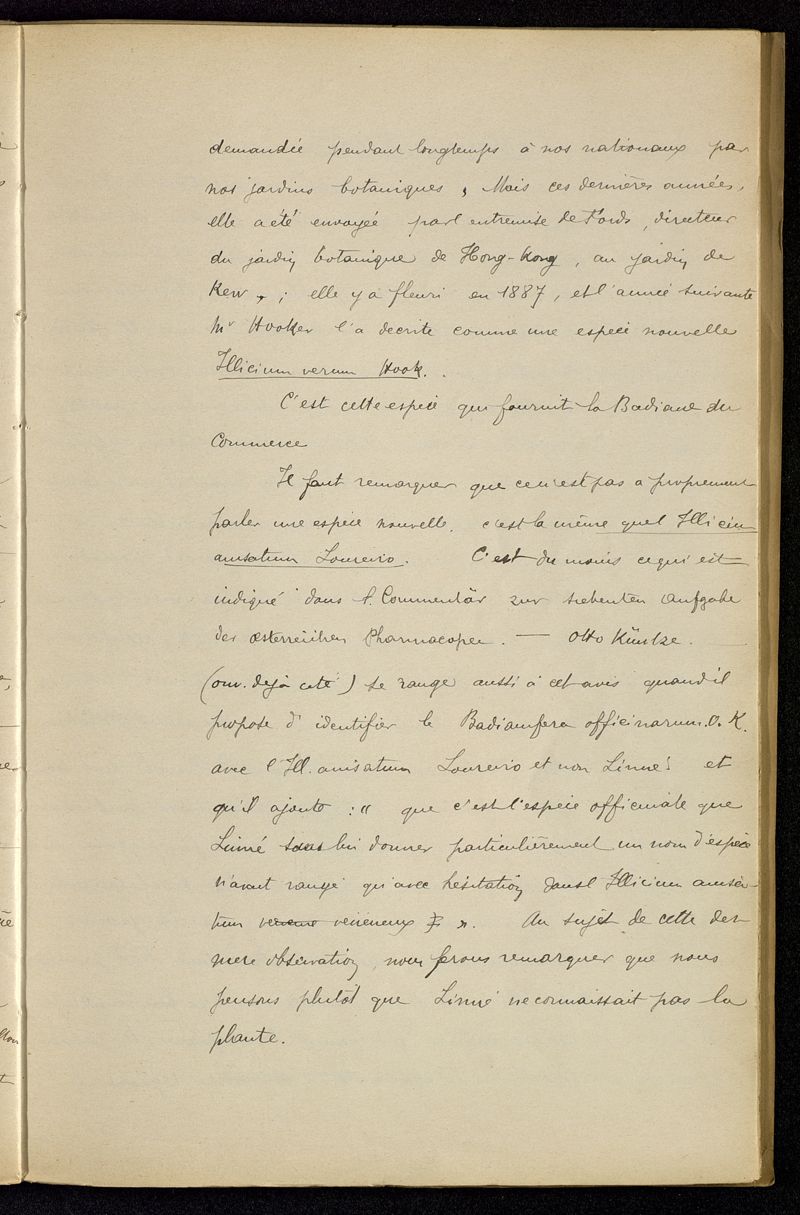 demandée pendant longtemps à nos nationaux par
nos jardins botaniques, Mais ces dernières années,
elle a été envoyée par l'entremise de Fords, directeur
du jardin botanique de Hong-Kong, au jardin de
Kew ; elle y a fleuri en 1887, et l'année suivante
Mr Hooker l'a decrite comme une espèce nouvelle
Illicium verum Hook.
C'est cette espèce qui fournit la Badiane du
Commerce
Il faut remarquer que ce n'est pas a proprement
parler une espèce nouvelle, c'est la même que l'Illicium
anisatum Loureiro. C'est du moins ce qui est
indiqué dans l. Commentär zur siebenten Aufgabe
der österreichen Pharmacopee. — Otto Küntze.
(ouv. dejà cité) se range aussi à cet avis quand il
propose d'identifier le Badianifera officinarum. O. K.
avec l'Ill. anisatum Loureiro et non Linné! et
qu'il ajoute : « que c'est l'espèce officinale que
Linné sans lui donner particulièrement un nom d'espèce
n'avait rangé qu'avec hésitation dans l'Illicium anisa-
tum veneno vénéneux ». Au sujet de cette der-
nière observation, nous ferons remarquer que nous
pensons plutôt que Linné ne connaissait pas la
plante.